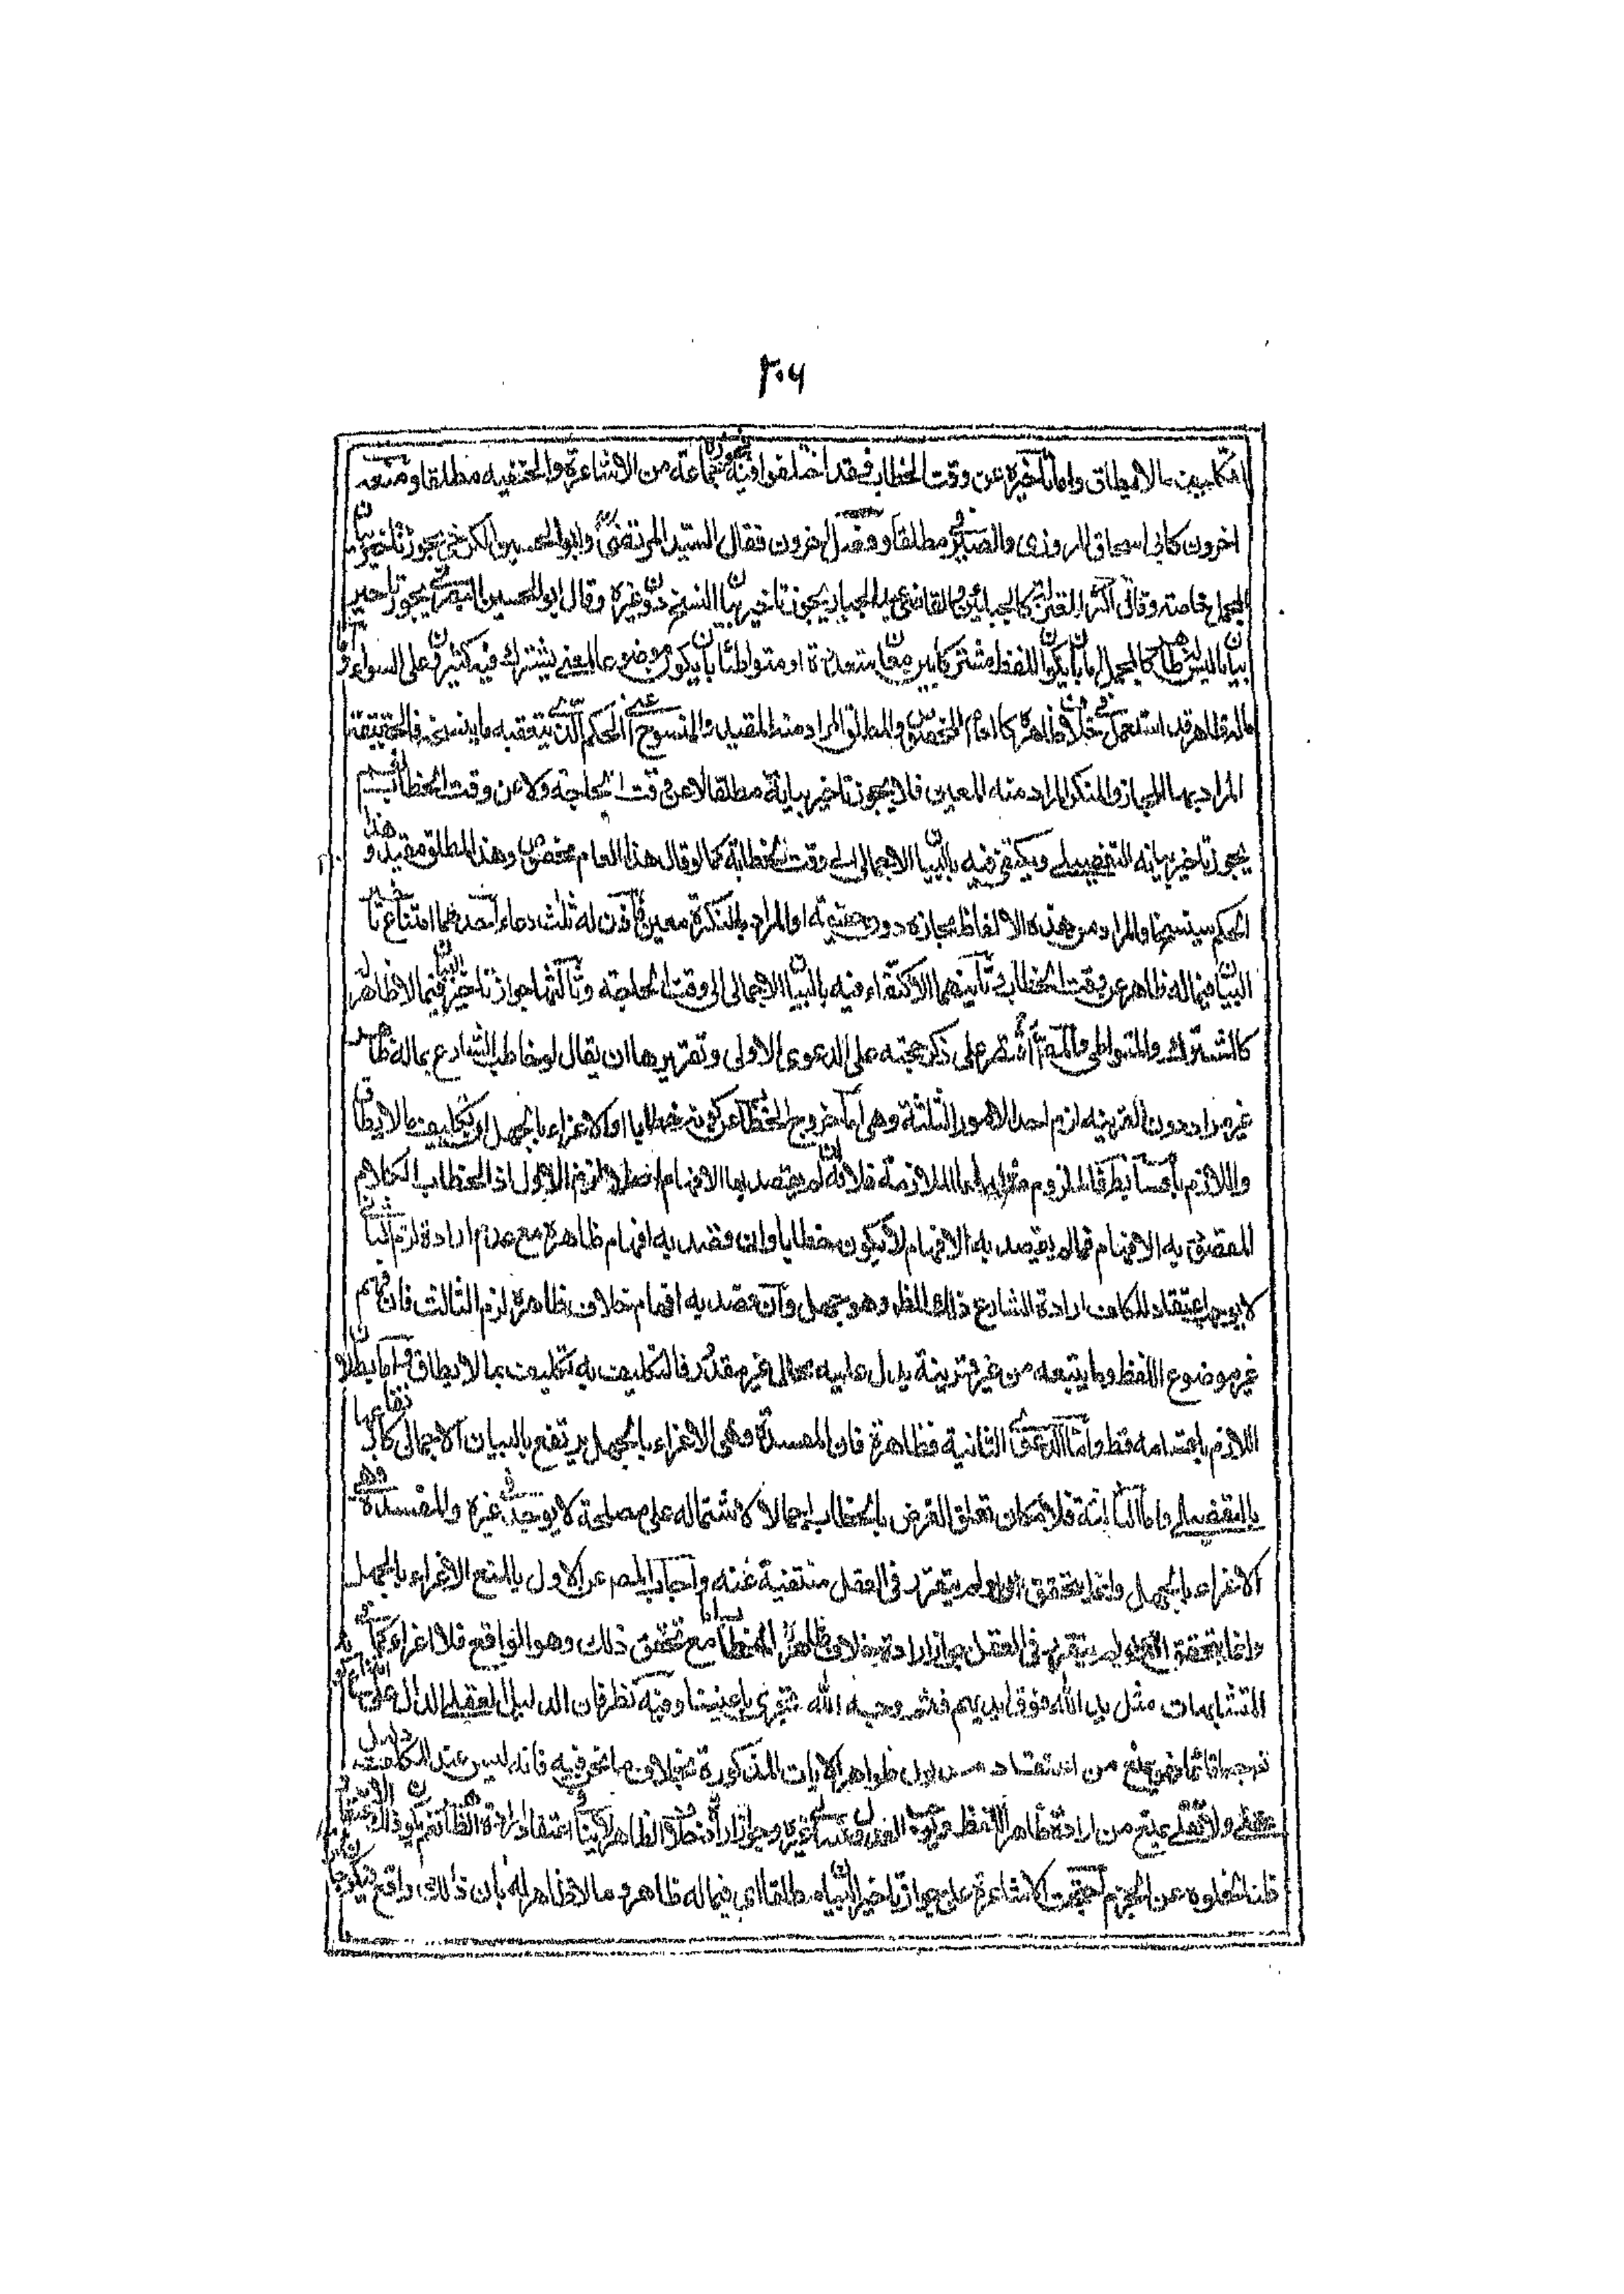 ٢٠٦
التكليف بما لا يطاق واما تاخيره عن وقت الخطاب فقد اختلفوا فيه فجوزه جماعة من الاشاعرة والحنفيه مطلقا ومنعه
اخرون كابى اسحاق المروزى والصيرفى مطلقا وفصل اخرون فقال السيد المرتضى وابو الحسين الكرخى يجوز تاخير بيان
المجمل خاصة وقال اكثر المعتزلة كالجبائيين والقاضى عبد الجبار يجوز تاخير بيان النسخ دون غيره وقال ابو الحسين البصرى يجوز تاخير
بيان ما ليس له ظاهر كالمجمل اما بان يكون اللفظ مشتركا بين معان متعددة او متواطئا بان يكون موضوعا لمعنى يشترك فيه كثيرون على السواء واما
ماله ظاهر قد استعمل فى خلاف ظاهره كالعام المخصوص والمطلق المراد منه المقيد والمنسوخ اعنى الحكم الذى يتعقبه ما ينسخه والحقيقة
المراد بها المجاز والمنكر المراد منه المعين فلا يجوز تاخير بيانه مطلقا لا عن وقت الحاجة ولا عن وقت الخطاب نعم
يجوز تاخير بيانه التفصيلى ويكتفى فيه بالبيان الاجمالى الى وقت الخطاب كما لو قال هذا العام مخصوص وهذا المطلق مقيد وهذا
الحكم سينسخ والمراد من هذه الالفاظ مجازه دون حقيقته او المراد بالنكرة معين فاذن له ثلث دعاء احدها امتناع تاخير
البيان فيما له ظاهر عن وقت الخطاب ثانيهما الاكتفاء فيه بالبيان الاجمالى الى وقت الحاجة وثالثها جواز تاخير البيان فيما لا ظاهر له
كالمشترك والمتواطى والمص اقتصر على ذكر حجته على الدعوى الاولى وتقريرها ان يقال لو خاطب الشارع بماله ظاهر
غير مراد دون القرينه لزم احد الامور الثلثة وهى اما خروج الخطاب عن كونه خطابا او الاغراء بالجهل او تكليف ما لا يطاق
واللازم باقسامه بط فالملزوم مثله اما الملازمة فلانه ان لم يقصد بها الافهام اصلا لزم الاول اذ الخطاب الكلام
المقصود به الافهام فما لم يقصد به الافهام لا يكون خطابا وان قصد به افهام ظاهره مع عدم ارادة لزم الثانى
لايوجب اعتقاد المكلف ارادة الشارع ذلك الظ وهو جهل وان قصد به افهام خلاف ظاهره لزم الثالث فان فهم
غير موضوع اللفظ وما يتبعه من غير قرينة يدل عليه محال غير مقدور فالتكليف به تكليف بما لا يطاق واما بطلان
اللازم باقسامه فظ واما الدعوى الثانية فظاهرة فان المفسدة وهى الاغراء بالجهل يرتفع بالبيان الاجمالى كارتفاعها
بالتفصيلى واما الثالثة فلامكان تعلق الغرض بالخطاب اجمالا لاشتماله على مصلحة لا يوجد فى غيره والمفسدة وهى
الاغراء بالجهل وانما يتحقق لو لم يتقرر فى العقل منتفية عنه واجاب المص عن الاول بالمنع الاغراء بالجهل
وانما يتحقق لو لم يتقرر فى العقل جواز ارادة خلاف ظاهر الخطاب مع تحقق ذلك وهو الواقع فلا اغراء كما فى
المتشابهات مثل يد الله فوق ايديهم فثم وجه الله تجرى باعيننا وفيه نظر فان الدليل العقلى الدال على امتناع
من اعتقاد مدلول ظواهر الايات المذكورة بخلاف ما نحن فيه فانه ليس عند المكلف دليل
عقلى ولا نقلى يمنع من ارادة ظاهر اللفظ وجواز ارادة خلاف الظاهر لا ينافى اعتقاد ارادة الظاهر
قلنا لخلوه عن الجزم احتجت الاشاعرة على جواز تاخير البيان مطلقا اى فيما له ظاهر وما لا ظاهر له بان ذلك واقع فيكون جايزا